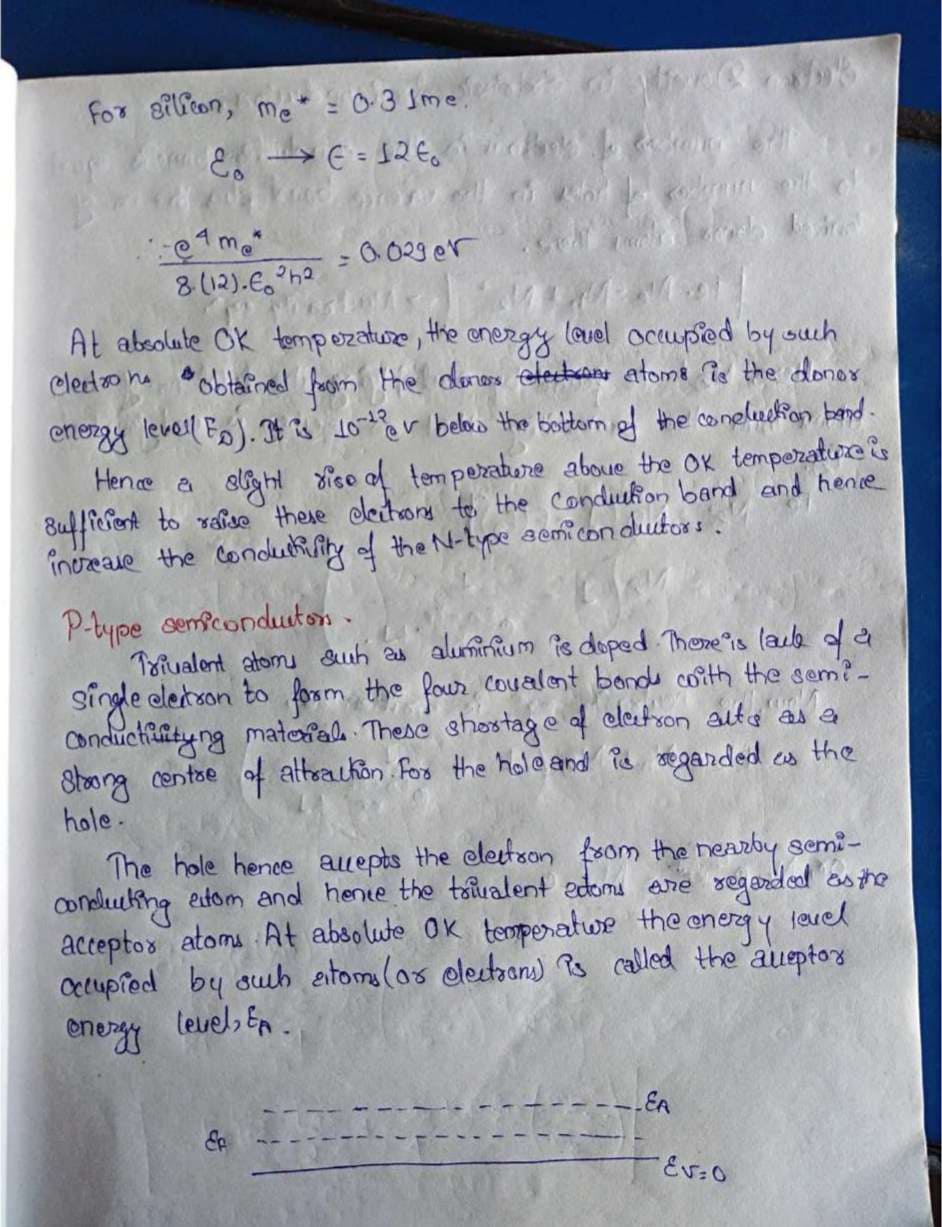 For silicon, me* = 0.31me.
ε₀ → ε = 12ε₀
∴ -e⁴ me* / 8.(12).ε₀²h² = 0.029 eV
At absolute 0K temperature, the energy level occupied by such
electrons obtained from the donor electrons atoms is the donor
energy level(E_D). It is 10⁻¹² eV below the bottom of the conduction band.
Hence a slight rise of temperature above the 0K temperature is
sufficient to raise these electrons to the conduction band and hence
increase the conductivity of the N-type semiconductors.
P-type semiconductors.
Trivalent atoms such as aluminium is doped. There is lack of a
single electron to form the four covalent bonds with the semi-
conductivityng material. These shortage of electron acts as a
strong centre of attraction for the hole and is regarded as the
hole.
The hole hence accepts the electron from the nearby semi-
conducting atom and hence the trivalent atoms are regarded as the
acceptor atoms. At absolute 0K temperature the energy level
occupied by such atoms(or electrons) is called the acceptor
energy level, E_A.
E_A
E_F
E_V=0